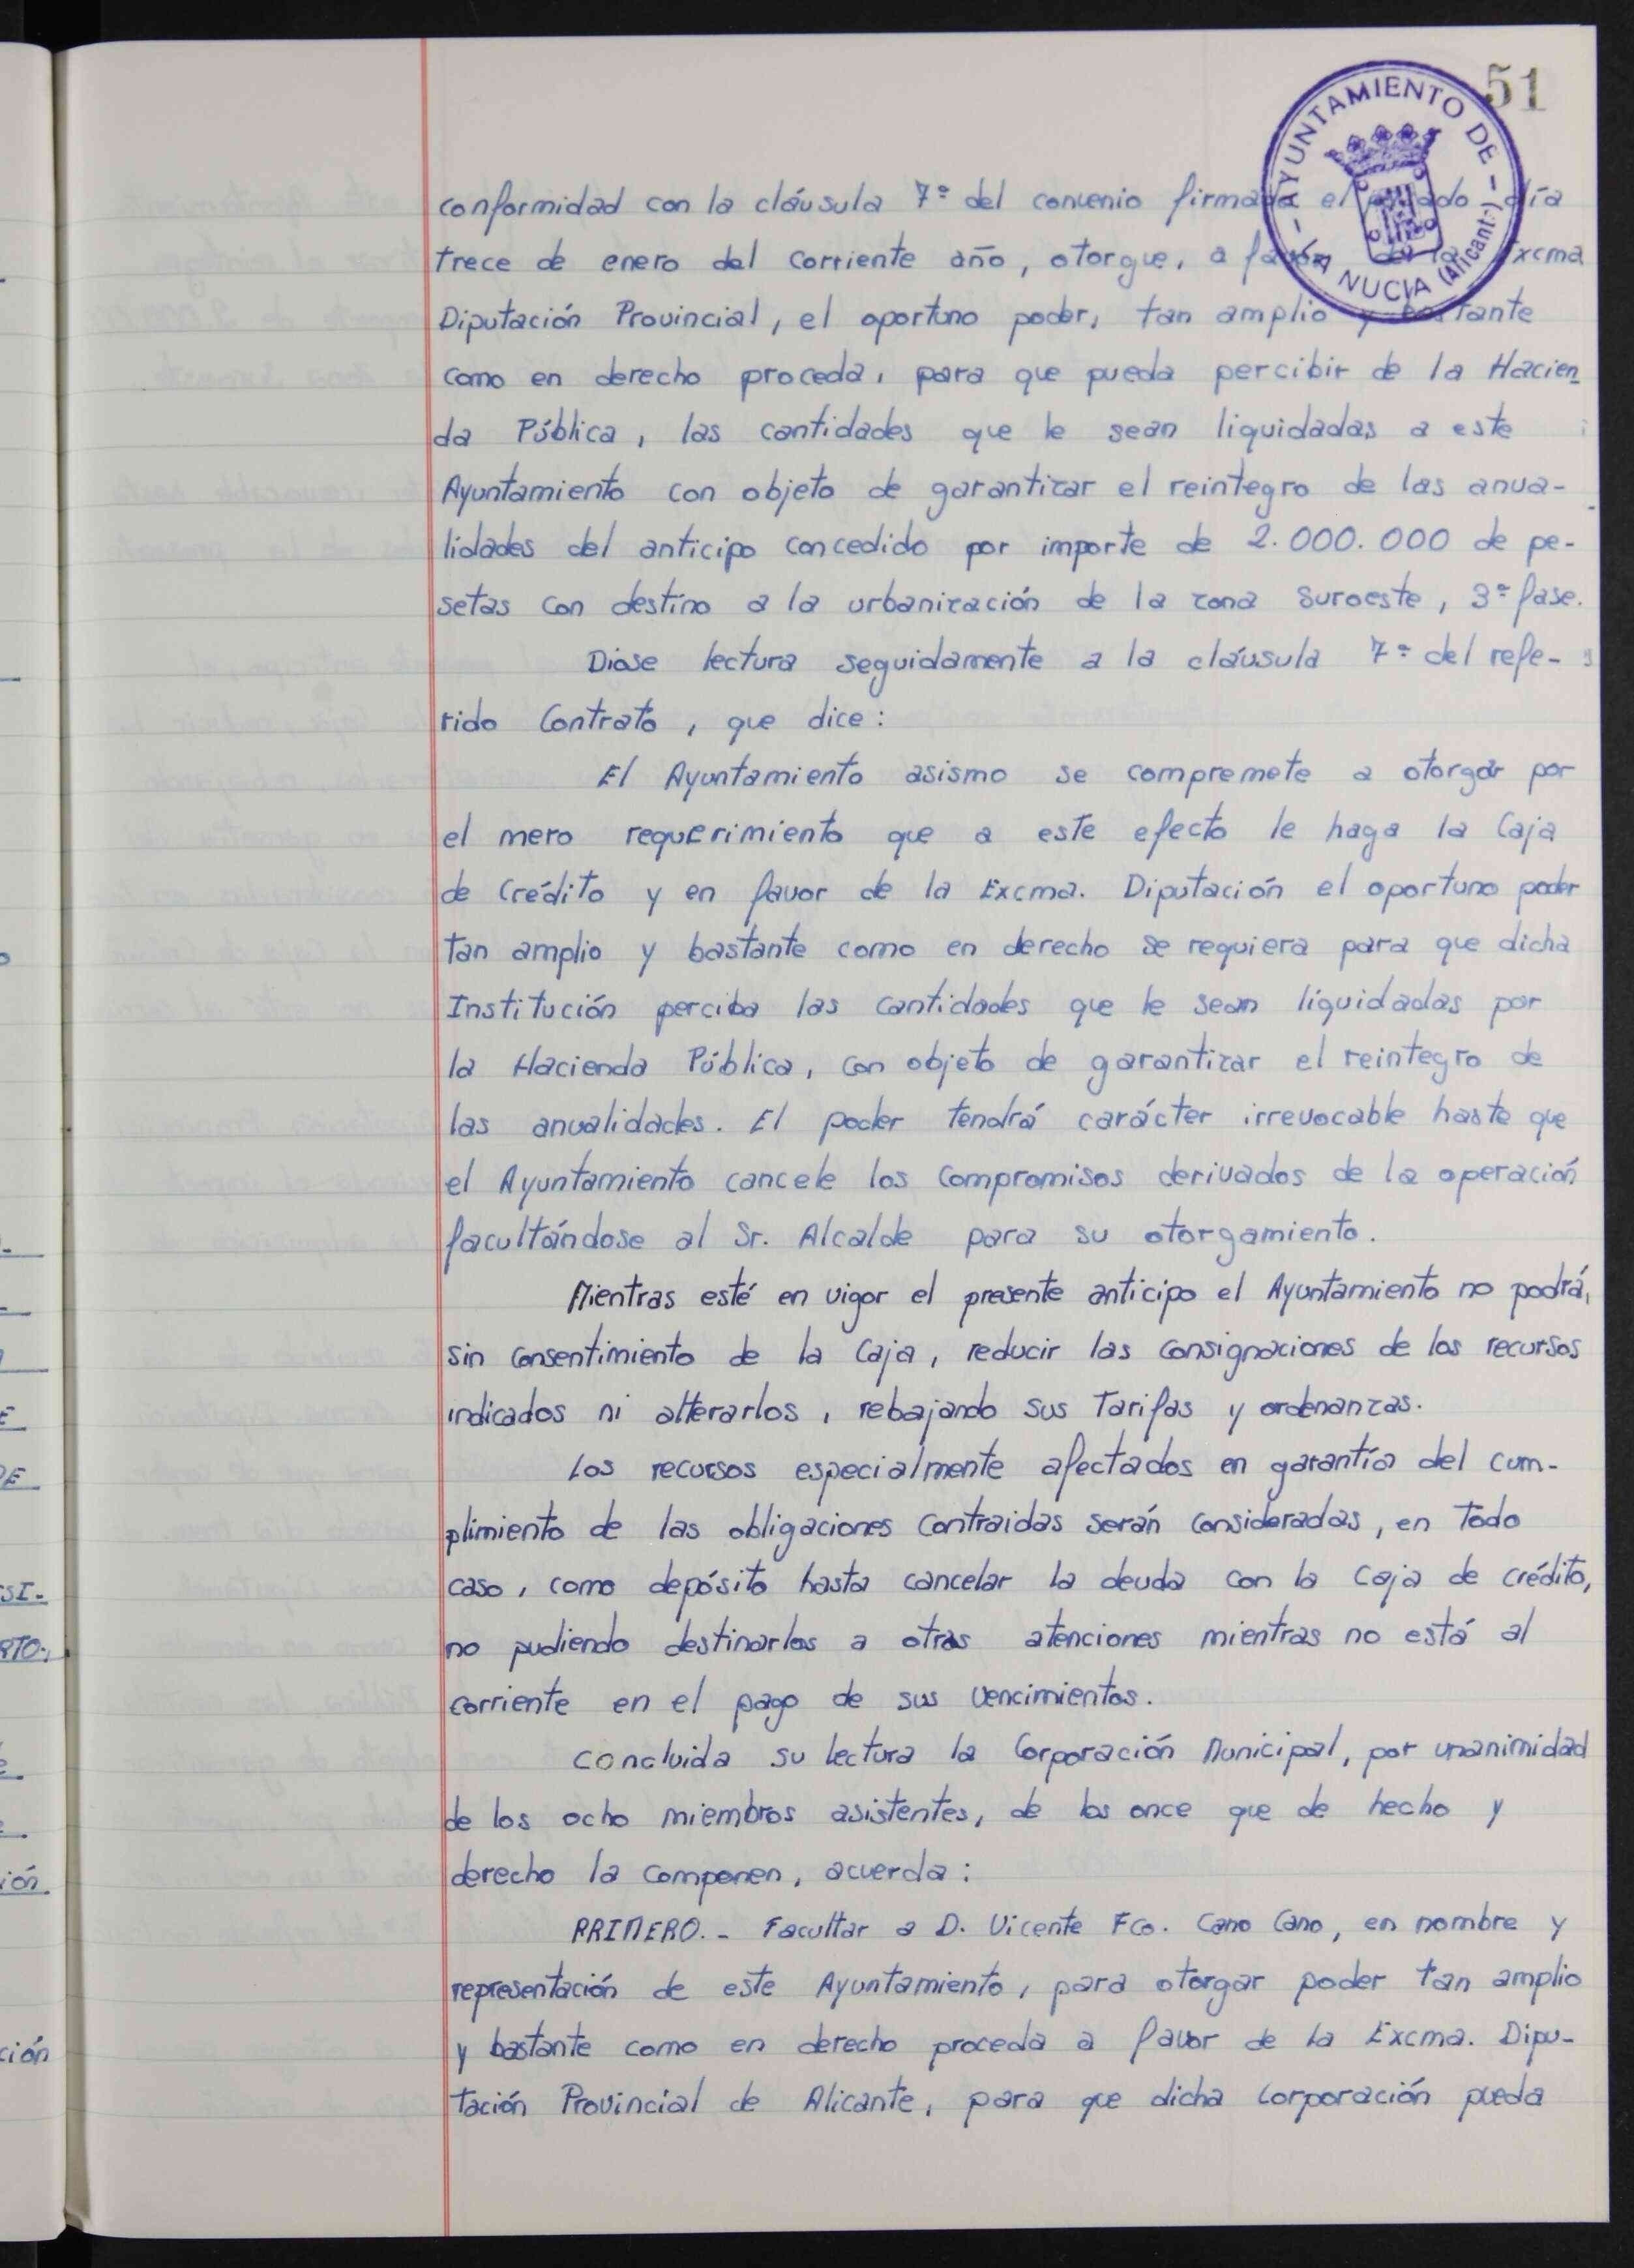 51
AYUNTAMIENTO DE
LA NUCIA (Alicante)
conformidad con la cláusula 7ª del convenio firmado el pasado día
trece de enero del corriente año, otorgue, a favor de la Excma
Diputación Provincial, el oportuno poder, tan amplio y bastante
como en derecho proceda, para que pueda percibir de la Hacien_
da Pública, las cantidades que le sean liquidadas a este
Ayuntamiento con objeto de garantizar el reintegro de las anua-
lidades del anticipo concedido por importe de 2.000.000 de pe-
setas con destino a la urbanización de la zona Suroeste, 3ª fase.
Diose lectura seguidamente a la cláusula 7ª del refe-
rido Contrato, que dice:
El Ayuntamiento asismo se compremete a otorgar por
el mero requerimiento que a este efecto le haga la Caja
de Crédito y en favor de la Excma. Diputación el oportuno poder
tan amplio y bastante como en derecho se requiera para que dicha
Institución perciba las cantidades que le sean liquidadas por
la Hacienda Pública, con objeto de garantizar el reintegro de
las anualidades. El poder tendrá carácter irrevocable haste que
el Ayuntamiento cancele los compromisos derivados de la operación
facultándose al Sr. Alcalde para su otorgamiento.
Mientras esté en vigor el presente anticipo el Ayuntamiento no podrá,
sin consentimiento de la Caja, reducir las consignaciones de los recursos
indicados ni alterarlos, rebajando sus Tarifas y ordenanzas.
Los recursos especialmente afectados en garantía del cum-
plimiento de las obligaciones contraidas serán consideradas, en Todo
caso, como depósito hasta cancelar la deuda con la Caja de crédito,
no pudiendo destinarlos a otras atenciones mientras no está al
corriente en el pago de sus vencimientos.
Concluida su lectura la Corporación Municipal, por unanimidad
de los ocho miembros asistentes, de los once que de hecho y
derecho la componen, acuerda:
PRIMERO.- Facultar a D. Vicente Fco. Cano Cano, en nombre y
representación de este Ayuntamiento, para otorgar poder tan amplio
y bastante como en derecho proceda a favor de la Excma. Dipu-
tación Provincial de Alicante, para que dicha Corporación pueda